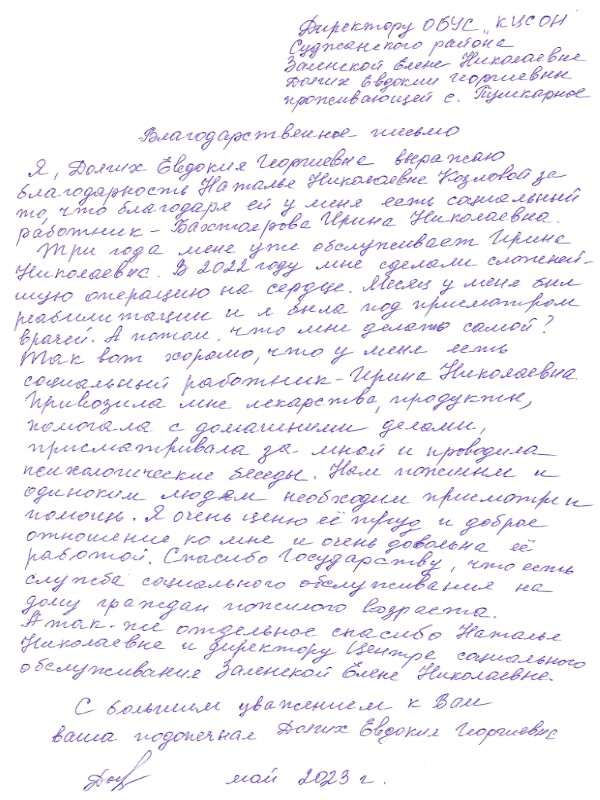 Директору ОБУС „КЦСОН
Суджанского района
Заленской Елене Николаевне
Долгих Евдокии Георгиевны
проживающей с. Пушкарное
Благодарственное письмо
Я, Долгих Евдокия Георгиевна выражаю
благодарность Наталье Николаевне Козловой за
то, что благодаря ей у меня есть социальный
работник – Бахтоярова Ирина Николаевна.
Три года меня уже обслуживает Ирина
Николаевна. В 2022 году мне сделали сложней-
шую операцию на сердце. Месяц у меня был
реабилитации и я была под присмотром
врачей. А потом, что мне делать самой?
Так вот хорошо, что у меня есть
социальный работник – Ирина Николаевна.
Привозила мне лекарства, продукты,
помогала с домашними делами,
присматривала за мной и проводила
психологические беседы. Нам пожилым и
одиноким людям необходим присмотр и
помощь. Я очень ценю её труд и доброе
отношение ко мне и очень довольна её
работой. Спасибо Государству, что есть
служба социального обслуживания на
дому граждан пожилого возраста.
А так-же отдельное спасибо Наталье
Николаевне и директору Центра социального
обслуживание Заленской Елене Николаевне.
С большим уважением к Вам
ваша подопечная Долгих Евдокия Георгиевна
май 2023 г.